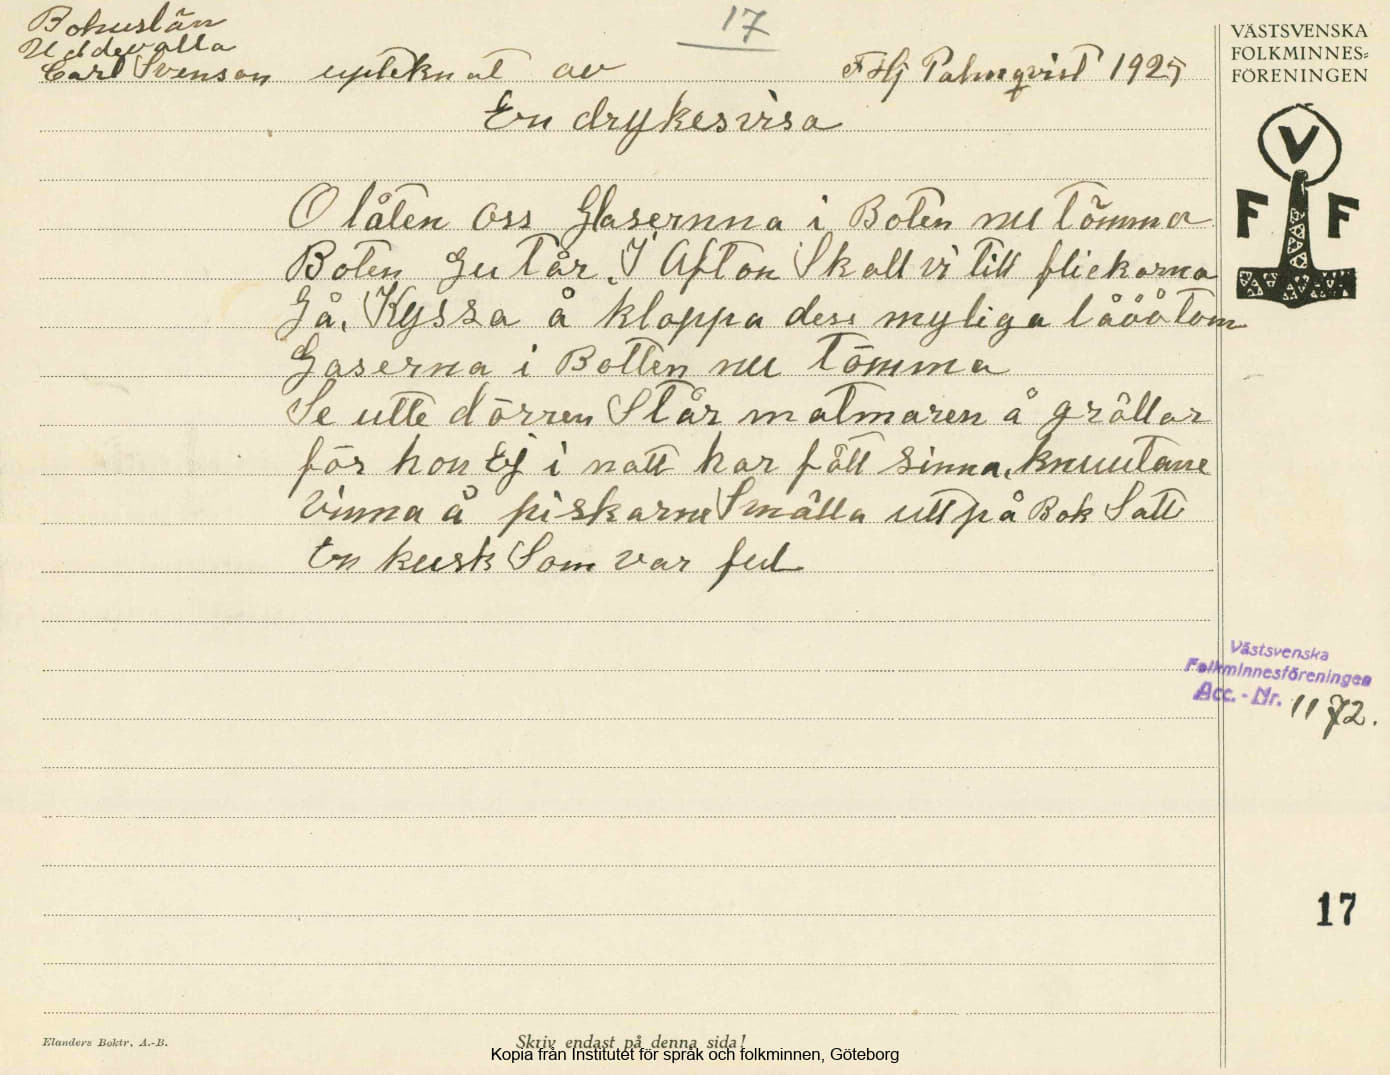 17
Bohuslän
Uddevalla
Carl Svenson upteknat av F Hj Palmqvist 1925
En drykesvisa
O låten oss Glasernna i Boten nu tömma
Boten Gu tår. I Afton Skall vi till flickorna
Gå. Kyssa å kloppa dess myliga låöötom
Gaserna i Botten nu tömma
Se utte dörren Står matmaren å grållar
för hon Ej i natt har fått sinna, knuutane
vinna å piskarne Smälla utt på Bok Satt
En kusk Som var ful
VÄSTSVENSKA
FOLKMINNES-
FÖRENINGEN
V
F F
Västsvenska
Folkminnesföreningen
Acc.-Nr. 1172.
17
Elanders Boktr. A.-B.
Skriv endast på denna sida!
Kopia från Institutet för språk och folkminnen, Göteborg